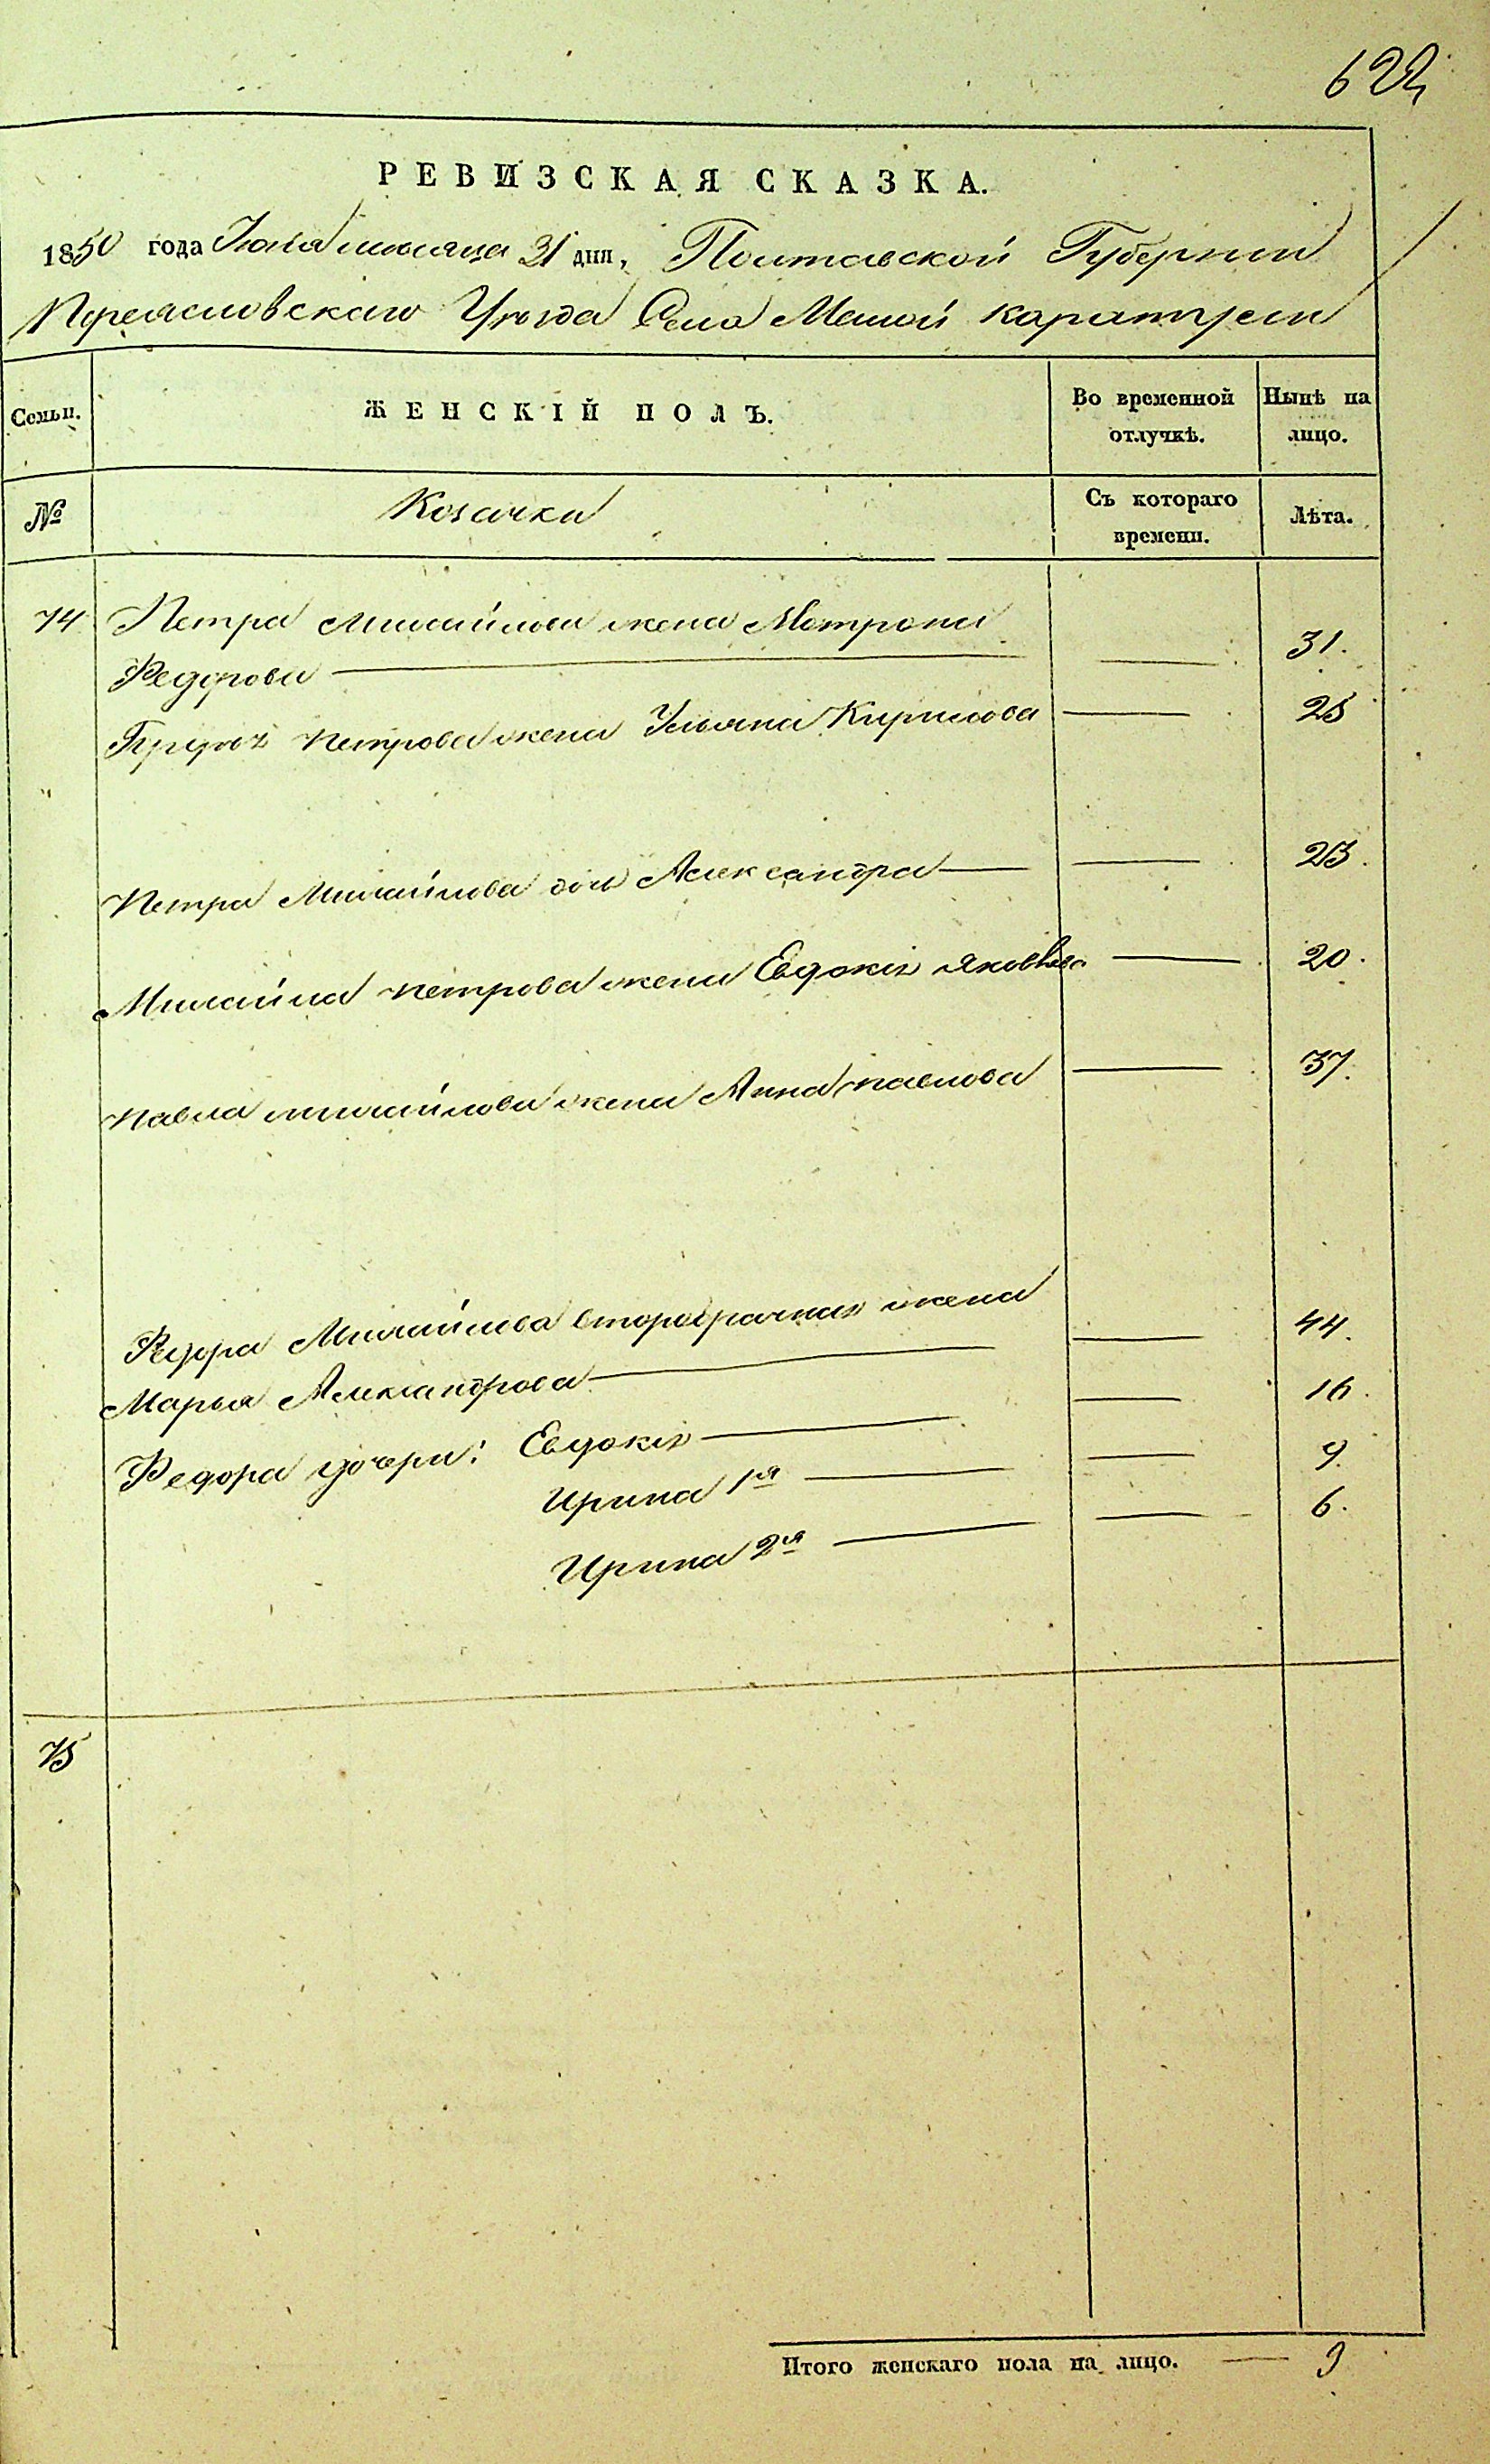 622
РЕВИЗСКАЯ СКАЗКА.
1850 года Июля месяца 31 дня, Полтавской Губернии
Переясловскаго Уезда Села Малой Каратули
Семьи. ЖЕНСКІЙ ПОЛЪ. Во временной отлучкѣ. Нынѣ на лицо.
№ Козачки Съ котораго времени. Лѣта.
74 Петра Михайлова жена Мотрона
Федорова — — 31.
Петрова жена Ульяна Кирилова — 25
Петра Михайлова дочь Александра — — 23.
Михайла Петрова жена Евдокія Яковлева — 20.
Павла Михайлова жена Анна Павлова — 37.
Федора Михайлова второбрачная жена
Марья Александрова — — 44.
Федора дочери: Евдокія — — 16.
Ирина 1я — — 9.
Ирина 2я — — 6.
75
Итого женскаго пола на лицо. — 9